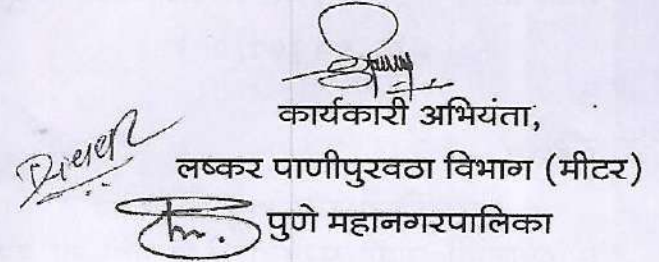 कार्यकारी अभियंता,
लष्कर पाणीपुरवठा विभाग (मीटर)
पुणे महानगरपालिका